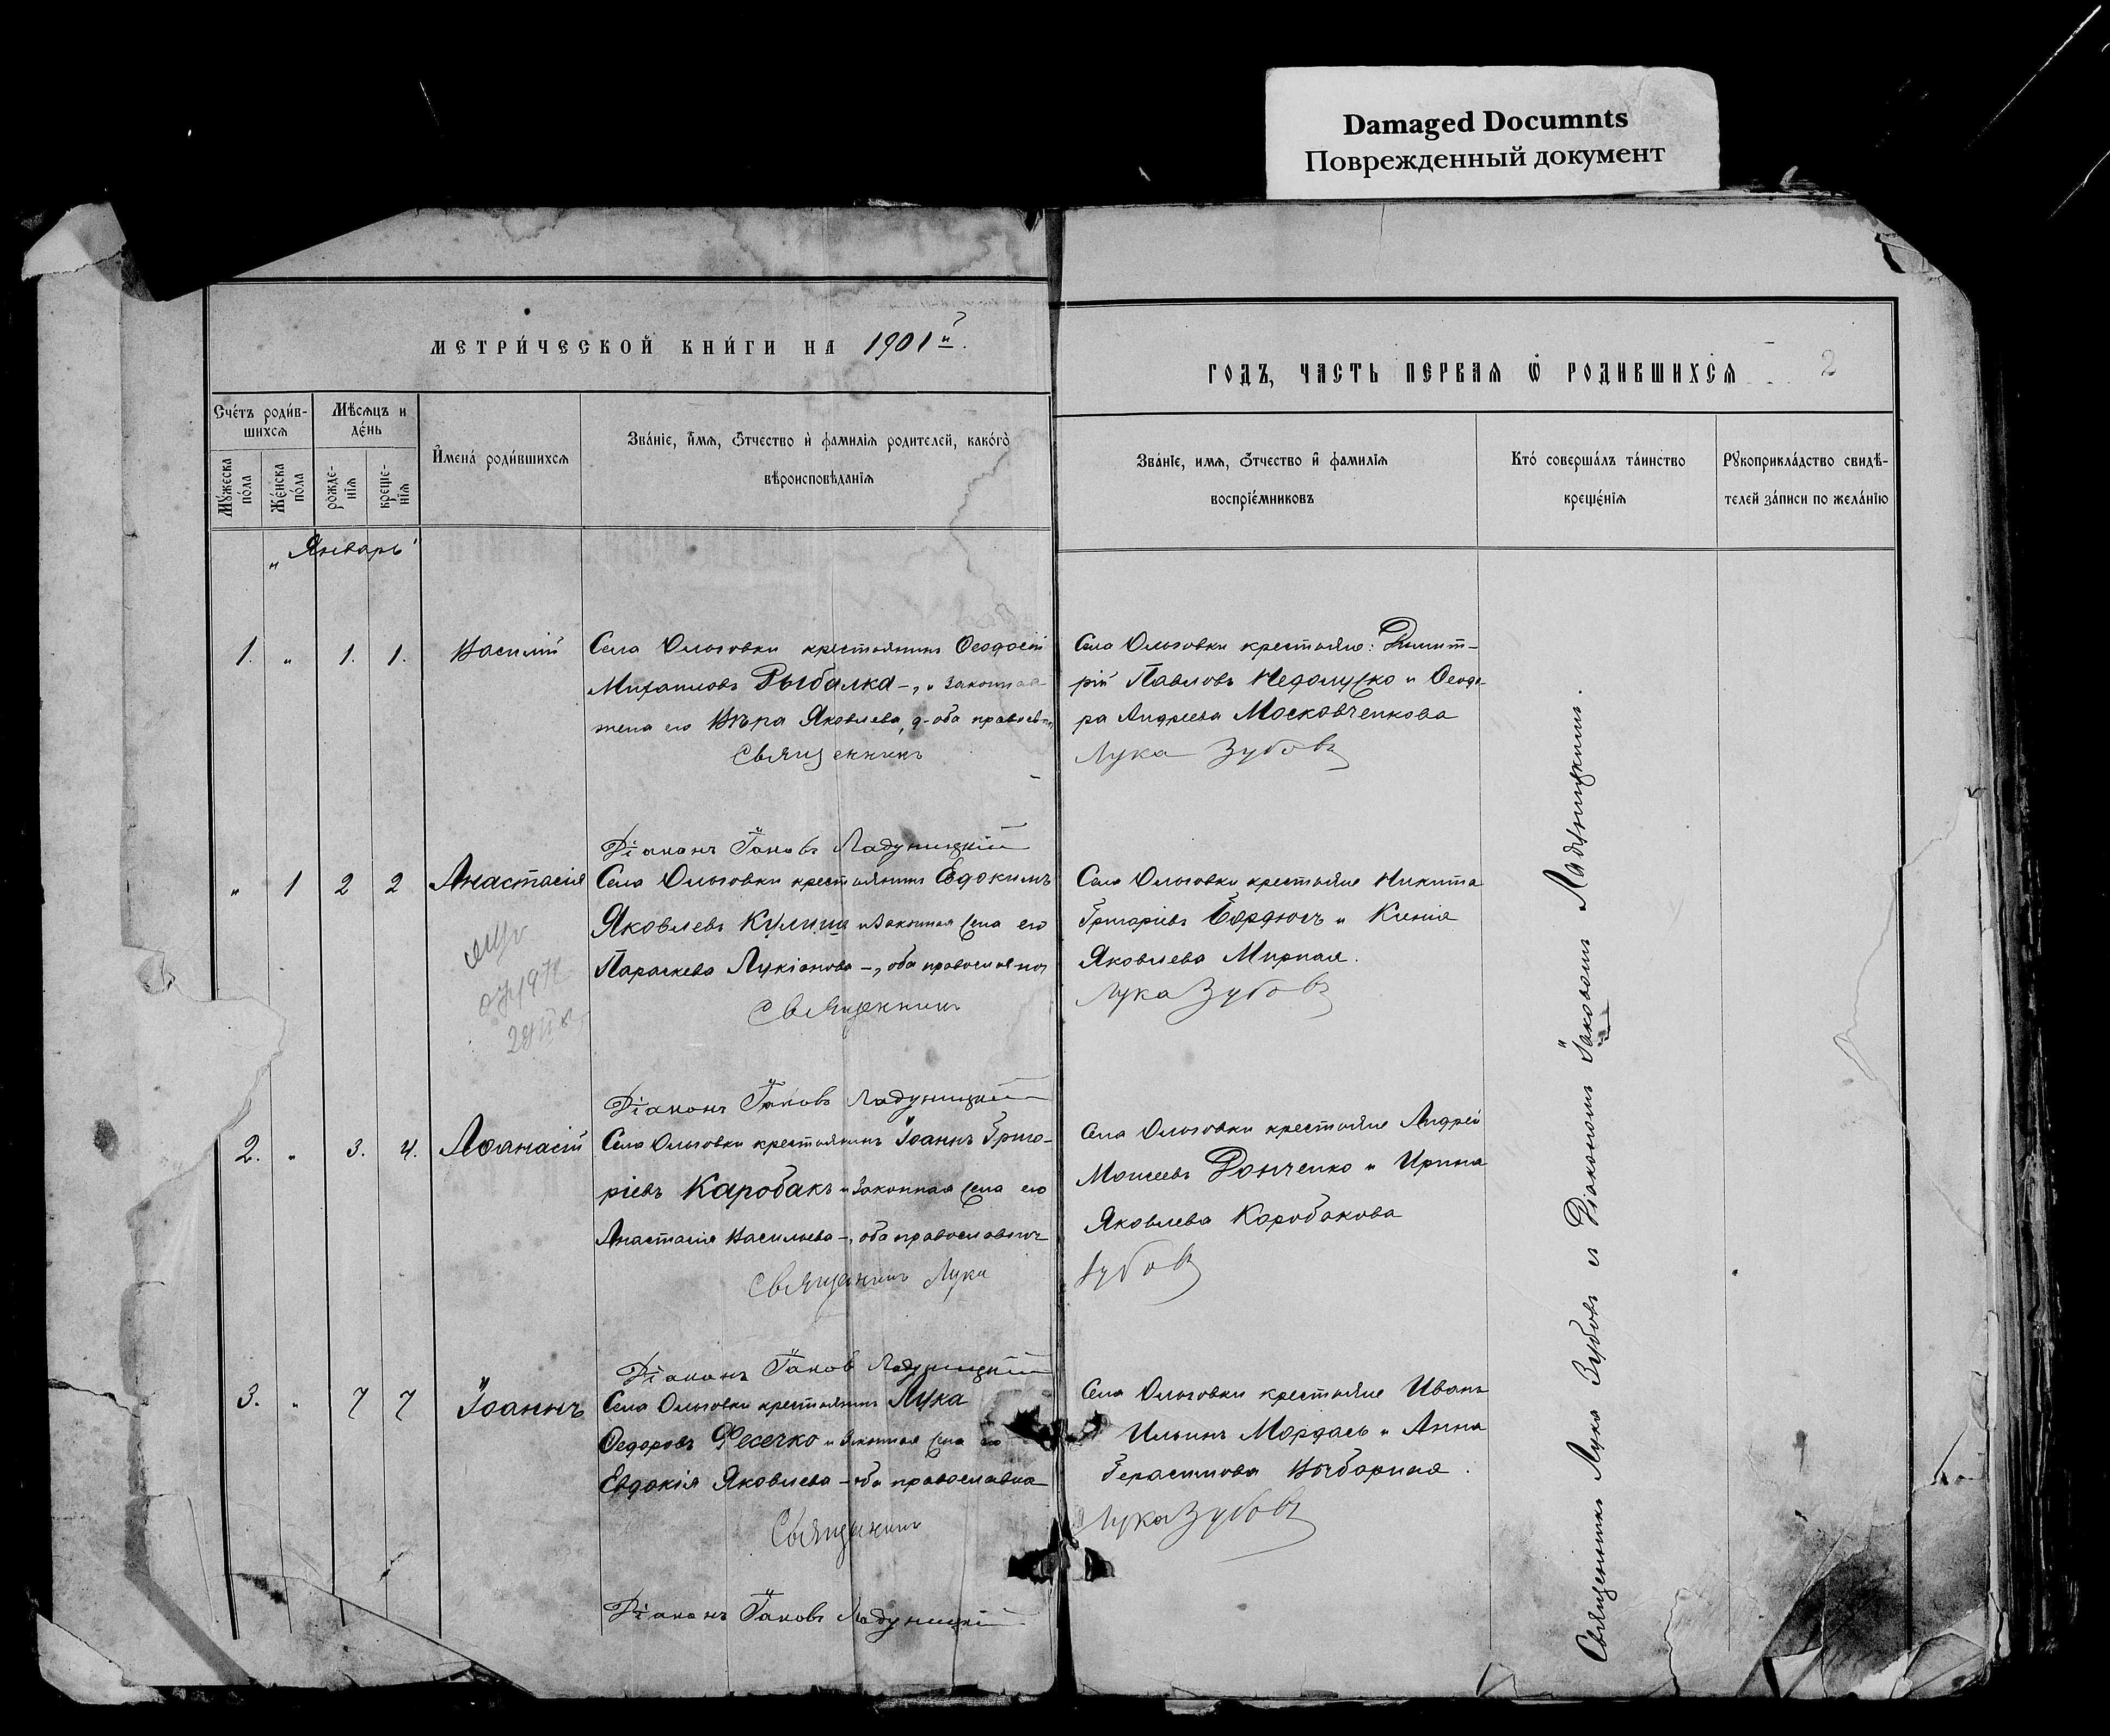 Damaged Documnts
Поврежденный документ
МЕТРИ́ЧЕСКОЙ КНИ́ГИ НА 1901й.
ГОДЪ, ЧАСТЬ ПЕРВАЯ Ѡ РОДИВШИХСЯ 2
Сче́тъ роди́в-
шихсѧ
Мꙋ́жеска по́ла
Же́нска по́ла
Мѣсѧцъ и
де́нь
рожде-
нїѧ
креще-
нїѧ
И҆мена́ роди́вшихсѧ
Зва́нїе, и҆́мѧ, ѻ҆́тчество и҆ фамилїѧ родителей, како́гѡ
вѣроисповѣ́данїѧ
Зва́нїе, имѧ, ѻ҆́тчество и҆ фамилїѧ
воспрїе́мниковъ
Кто́ соверша́лъ та́инство
креще́нїѧ
Рꙋкоприкла́дство свидѣ́-
телей за́писи по жела́нїю
„Январь"
1. „ 1. 1. Василій
Села Ольговки крестьянинъ Ѳеодосій
Михаиловъ Рыбалка -, и законная
жена его Вѣра Яковлева, - оба правосл
Священникъ
Села Ольговки крестьяне: Димит-
рій Павловъ Недолужко и Ѳеодо-
ра Андреева Московченкова
Лука Зубовъ
Діаконъ Іаковъ Ладуницкій
„ 1 2 2 Анастасія
Села Ольговки крестьянинъ Евдокимъ
Яковлевъ Кулиш и законная жена его
Параскева Лукіанова -, оба православны
Священникъ
Села Ольговки крестьяне Никита
Григоріевъ Бардюгъ и Ксенія
Яковлева Мирная.
Лука Зубовъ
Діаконъ Іаковъ Ладуницкій
2. „ 3. 4. Аѳанасій
Села Ольговки крестьянинъ Іоаннъ Григо-
ріевъ Каробакъ и законная жена его
Анастасія Васильева -, оба православны
Священникъ Лука
Села Ольговки крестьяне Андрей
Моисеевъ Донченко и Ирина
Яковлева Коробакова
Зубовъ
Діаконъ Іаковъ Ладуницкій
3. „ 7 7 Іоаннъ
Села Ольговки крестьянинъ Лука
Ѳедоровъ Фесечко и законная жена его
Евдокія Яковлева - оба православна
Священникъ
Села Ольговки крестьяне Иванъ
Ильинъ Мордась и Анна
Герасимова Выборная.
Лука Зубовъ
Діаконъ Іаковъ Ладуницкій
Священникъ Лука Зубовъ и Діаконъ Іаковомъ Ладуницкимъ.